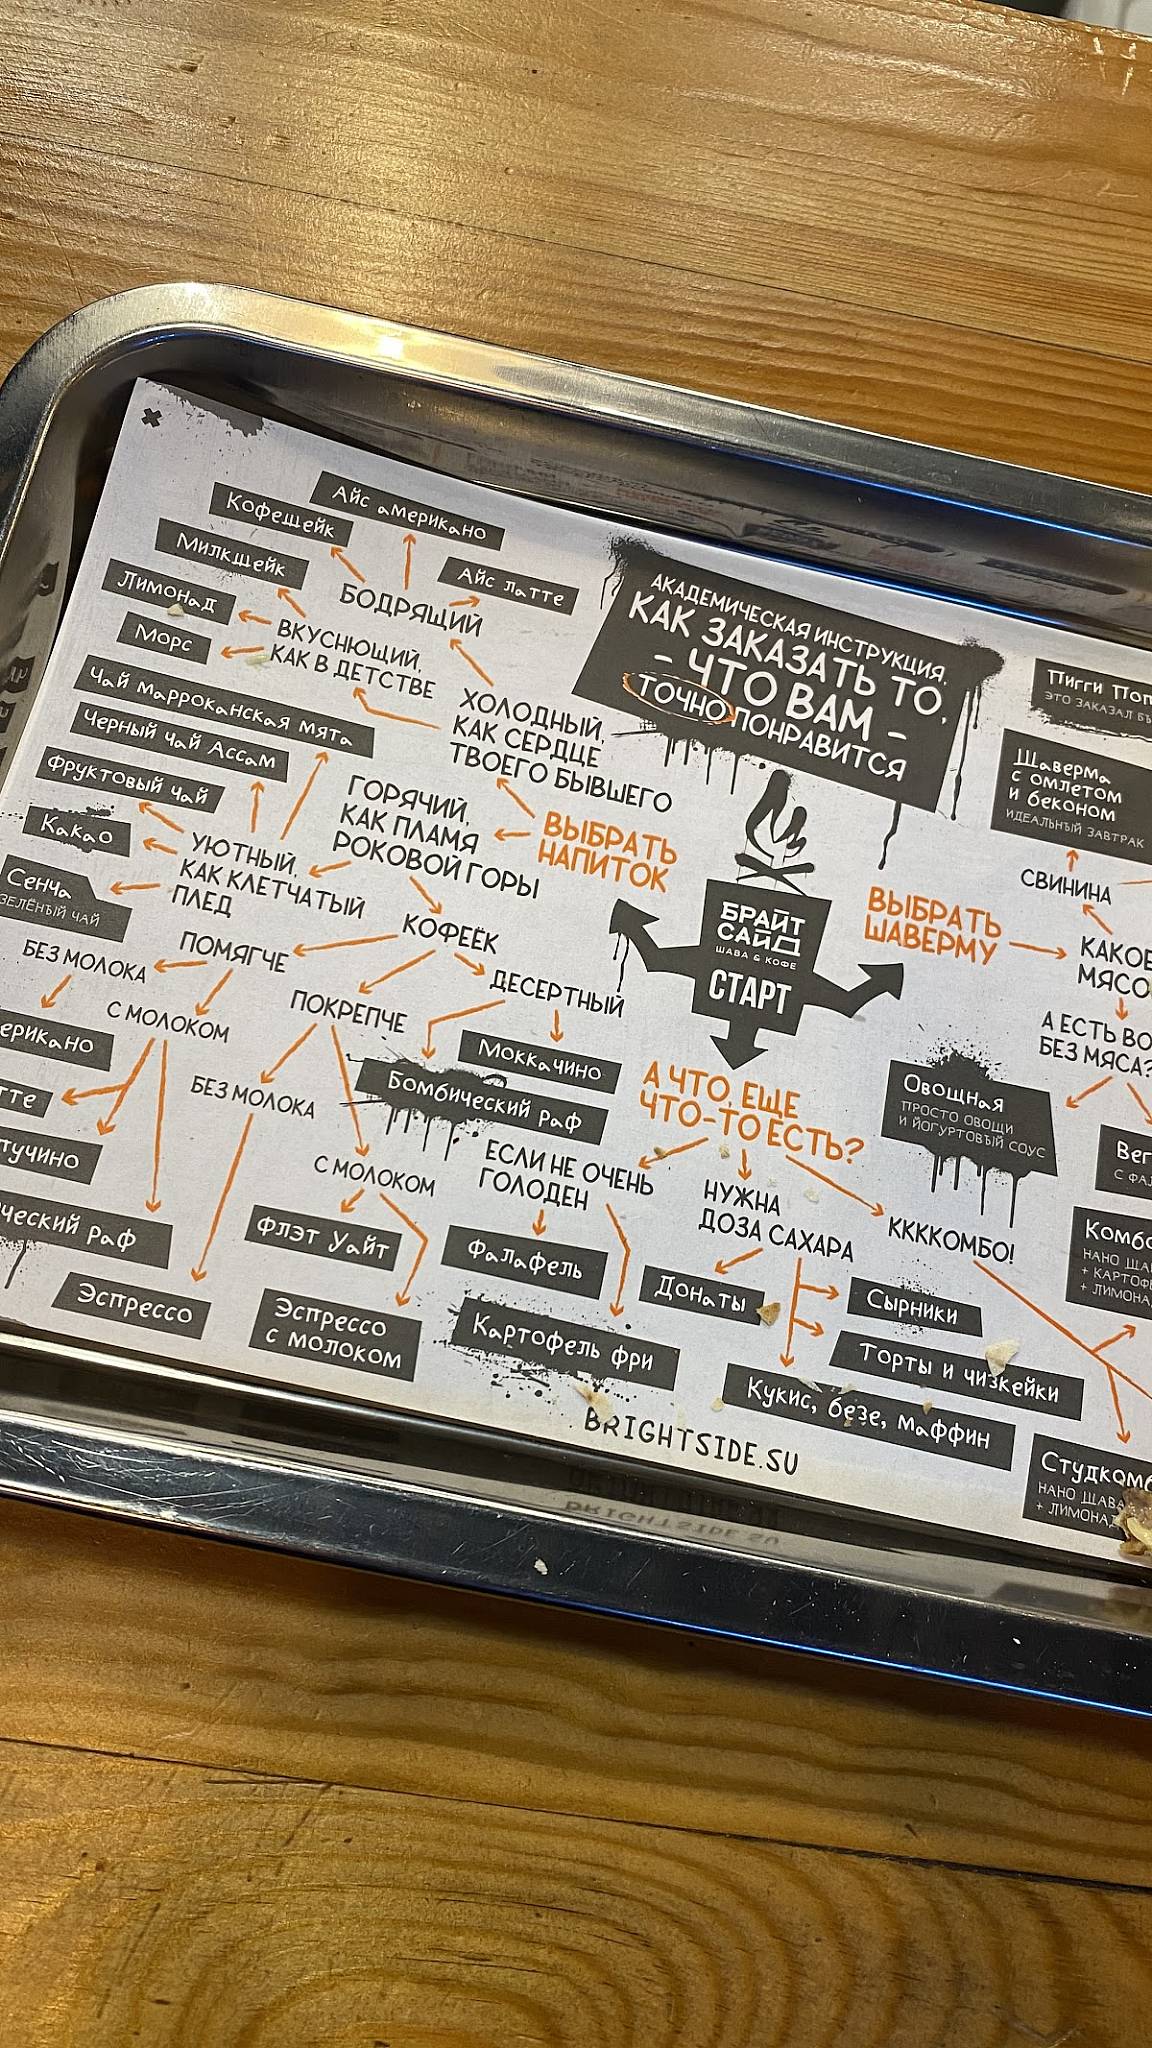 АКАДЕМИЧЕСКАЯ ИНСТРУКЦИЯ,
КАК ЗАКАЗАТЬ ТО,
- ЧТО ВАМ -
ТОЧНО ПОНРАВИТСЯ
БРАЙТ
САЙД
ШАВА & КОФЕ
СТАРТ
ВЫБРАТЬ
НАПИТОК
ХОЛОДНЫЙ,
КАК СЕРДЦЕ
ТВОЕГО БЫВШЕГО
БОДРЯЩИЙ
Кофешейк
Айс американо
Айс латте
ВКУСНЮЩИЙ,
КАК В ДЕТСТВЕ
Милкшейк
Лимонад
Морс
ГОРЯЧИЙ,
КАК ПЛАМЯ
РОКОВОЙ ГОРЫ
УЮТНЫЙ,
КАК КЛЕТЧАТЫЙ
ПЛЕД
Чай марроканская мята
Черный чай Ассам
Фруктовый чай
Какао
Сенча
ЗЕЛЁНЫЙ ЧАЙ
КОФЕЁК
ПОМЯГЧЕ
БЕЗ МОЛОКА
ерикано
С МОЛОКОМ
тте
тучино
ческий раф
ПОКРЕПЧЕ
БЕЗ МОЛОКА
Эспрессо
С МОЛОКОМ
Флэт Уайт
Эспрессо
с молоком
ДЕСЕРТНЫЙ
Моккачино
Бомбический раф
А ЧТО, ЕЩЕ
ЧТО-ТО ЕСТЬ?
ЕСЛИ НЕ ОЧЕНЬ
ГОЛОДЕН
Фалафель
Картофель фри
НУЖНА
ДОЗА САХАРА
Донаты
Сырники
Торты и чизкейки
Кукис, безе, маффин
ККККОМБО!
Комбо
НАНО ША
+ КАРТОФ
+ ЛИМОНА
Студком
НАНО ШАВА
+ ЛИМОНАД
ВЫБРАТЬ
ШАВЕРМУ
КАКОЕ
МЯСО
СВИНИНА
Пигги Поп
ЭТО ЗАКАЗАЛ БЫ
Шаверма
с омлетом
и беконом
ИДЕАЛЬНЫЙ ЗАВТРАК
А ЕСТЬ ВО
БЕЗ МЯСА?
Овощная
ПРОСТО ОВОЩИ
И ЙОГУРТОВЫЙ СОУС
Вег
С ФА
BRIGHTSIDE.SU